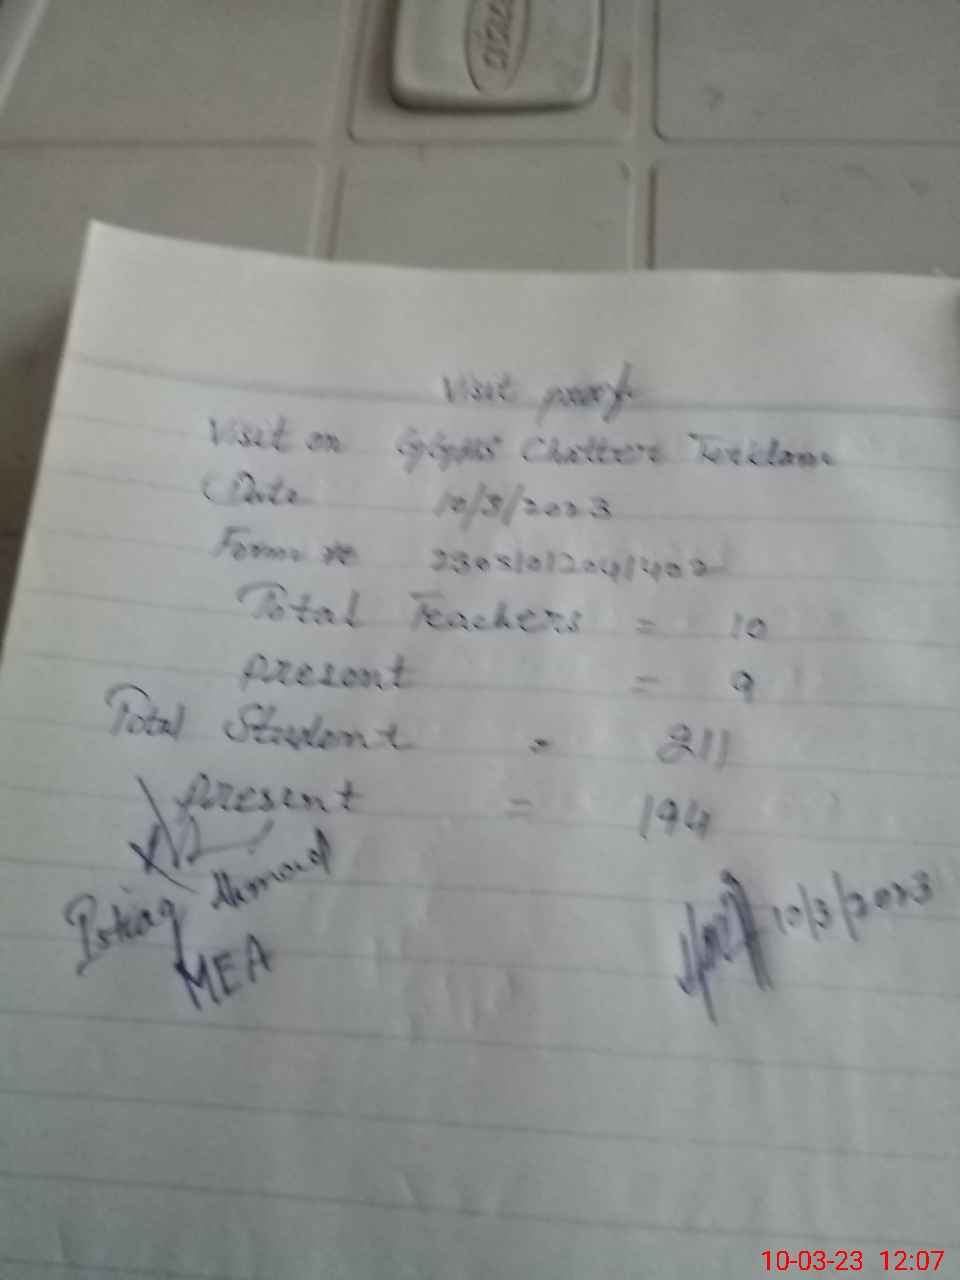 Visit proof
Visit on GGMS Chattrri Teritlam
Date 10/3/2023
Form no 23031012041402
Total Teachers = 10
present = 9
Total Student = 211
present = 194
Ishtiaq Ahmad
MEA
10/3/2023
10-03-23 12:07